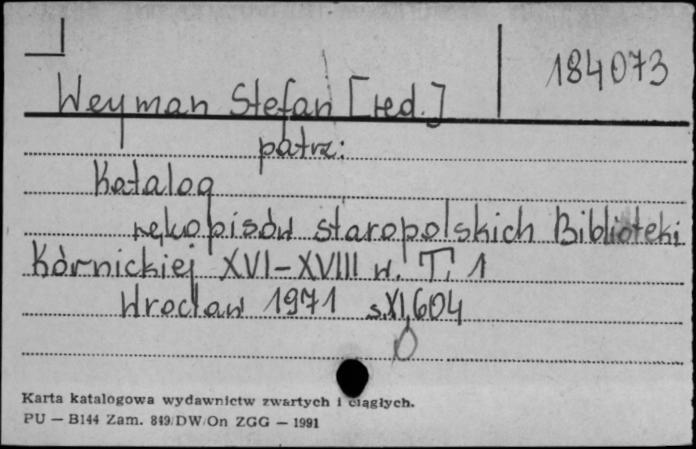 184073
Weyman Stefan [red.]
patrz:
Katalog
rękopisów staropolskich Biblioteki
Kórnickiej XVI-XVIII w. T. 1
Wrocław 1971 s.XI,604
Karta katalogowa wydawnictw zwartych i ciągłych.
PU — B144 Zam. 849/DW/On ZGG — 1991